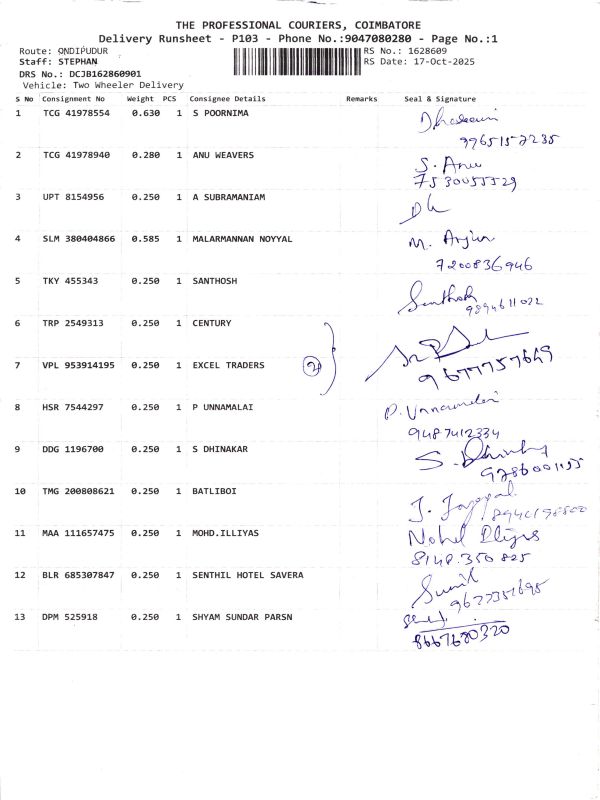 THE PROFESSIONAL COURIERS, COIMBATORE
Delivery Runsheet - P103 - Phone No.:9047080280 - Page No.:1
Route: ONDIPUDUR RS No.: 1628609
Staff: STEPHAN RS Date: 17-Oct-2025
DRS No.: DCJB162860901
Vehicle: Two Wheeler Delivery
S No Consignment No Weight PCS Consignee Details Remarks Seal & Signature
1 TCG 41978554 0.630 1 S POORNIMA
9765152235
2 TCG 41978940 0.280 1 ANU WEAVERS S. Anu
7530055529
3 UPT 8154956 0.250 1 A SUBRAMANIAM
4 SLM 380404866 0.585 1 MALARMANNAN NOYYAL M. Arjun
7200836946
5 TKY 455343 0.250 1 SANTHOSH Santhosh
9894611022
6 TRP 2549313 0.250 1 CENTURY
7 VPL 953914195 0.250 1 EXCEL TRADERS 2
9677757649
8 HSR 7544297 0.250 1 P UNNAMALAI P. Unnamalai
9487412334
9 DDG 1196700 0.250 1 S DHINAKAR
9286001155
10 TMG 200808621 0.250 1 BATLIBOI
11 MAA 111657475 0.250 1 MOHD.ILLIYAS
8148.350 825
12 BLR 685307847 0.250 1 SENTHIL HOTEL SAVERA Sunil
9677351695
13 DPM 525918 0.250 1 SHYAM SUNDAR PARSN
8667680320